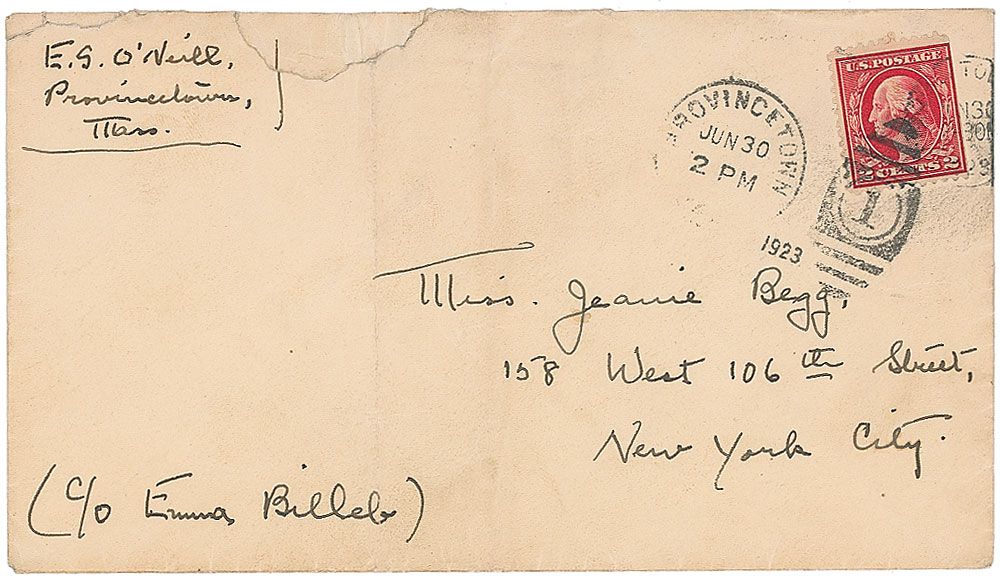 E.G. O'Neill,
Provincetown,
Mass.
U.S. POSTAGE
2 CENTS 2
PROVINCETOWN
JUN 30
2 PM
1923
1
Miss. Jeanie Begg,
158 West 106th Street,
New York City.
(c/o Emma Billeb)